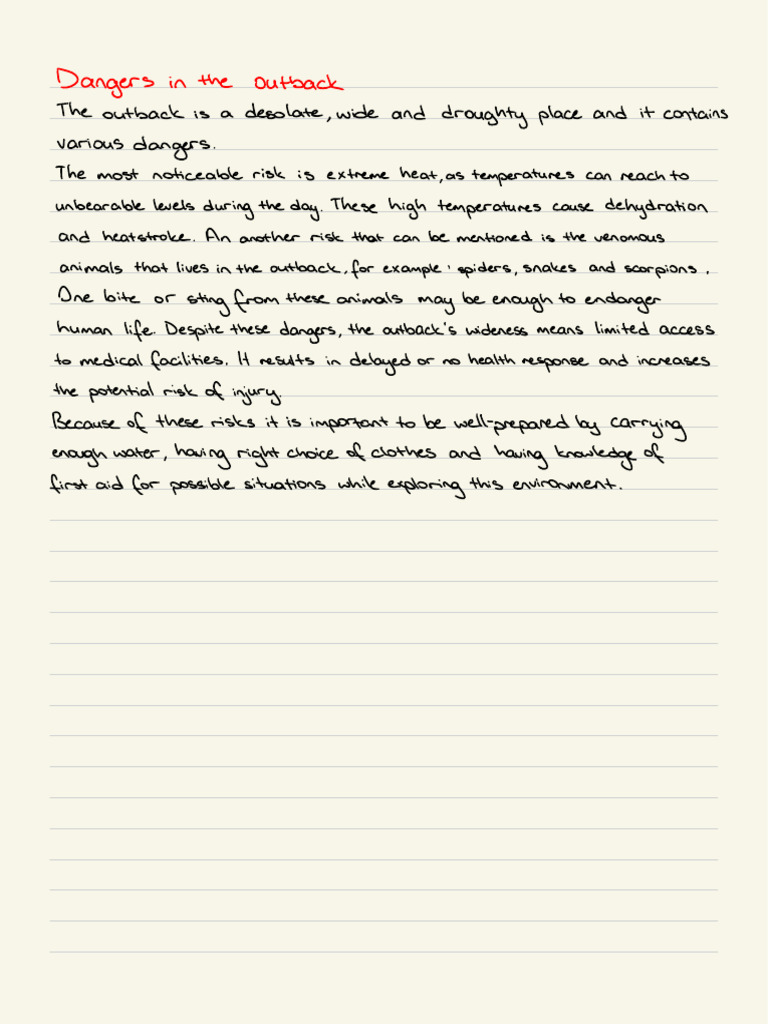 Dangers in the outback
The outback is a desolate, wide and droughty place and it contains
various dangers.
The most noticeable risk is extreme heat, as temperatures can reach to
unbearable levels during the day. These high temperatures cause dehydration
and heatstroke. An another risk that can be mentioned is the venomous
animals that lives in the outback, for example: spiders, snakes and scorpions.
One bite or sting from these animals may be enough to endanger
human life. Despite these dangers, the outback's wideness means limited access
to medical facilities. It results in delayed or no health response and increases
the potential risk of injury.
Because of these risks it is important to be well-prepared by carrying
enough water, having right choice of clothes and having knowledge of
first aid for possible situations while exploring this environment.